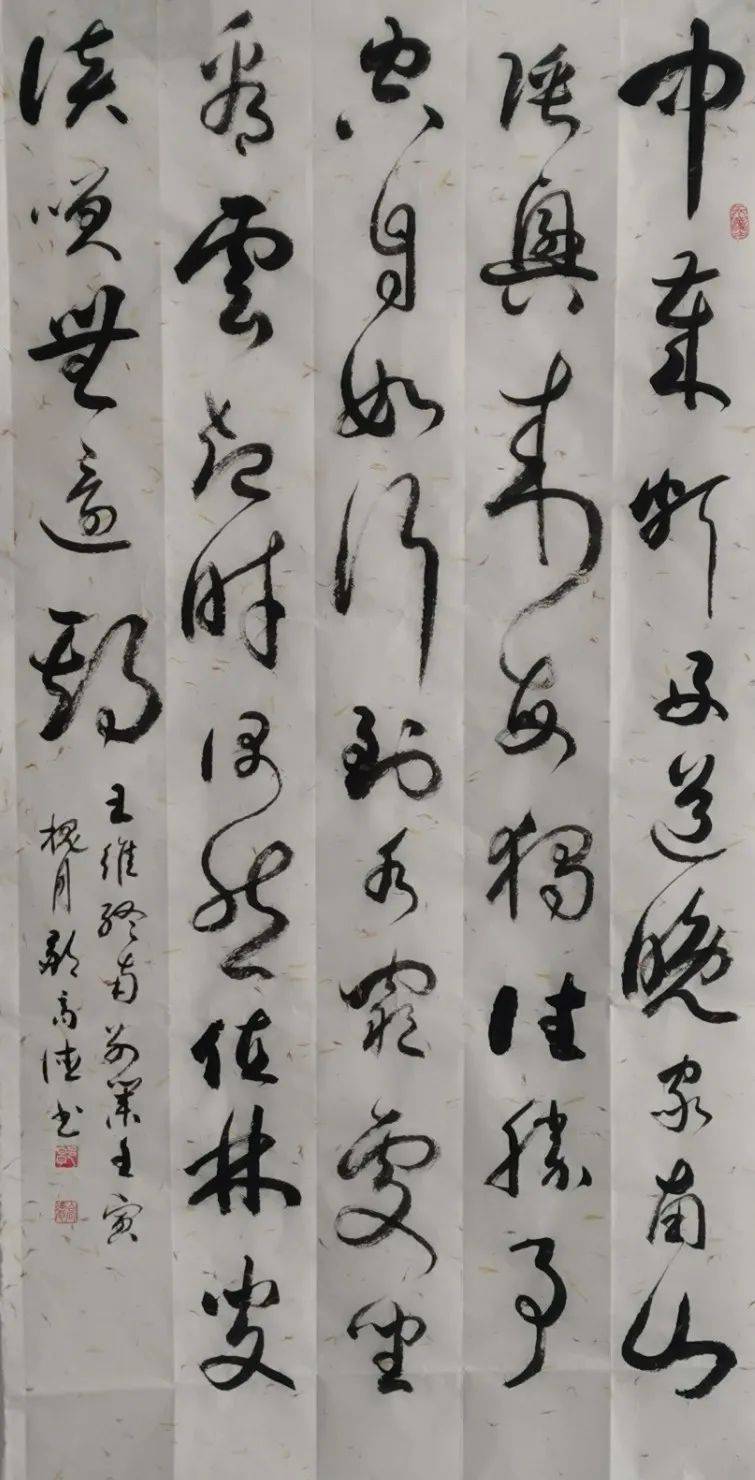 中歲頗好道晚家南山
陲興來每獨往勝事
空自知行到水窮處坐
看雲起時偶然值林叟
談咲無還期
王維終南别業壬寅
槐月高德书